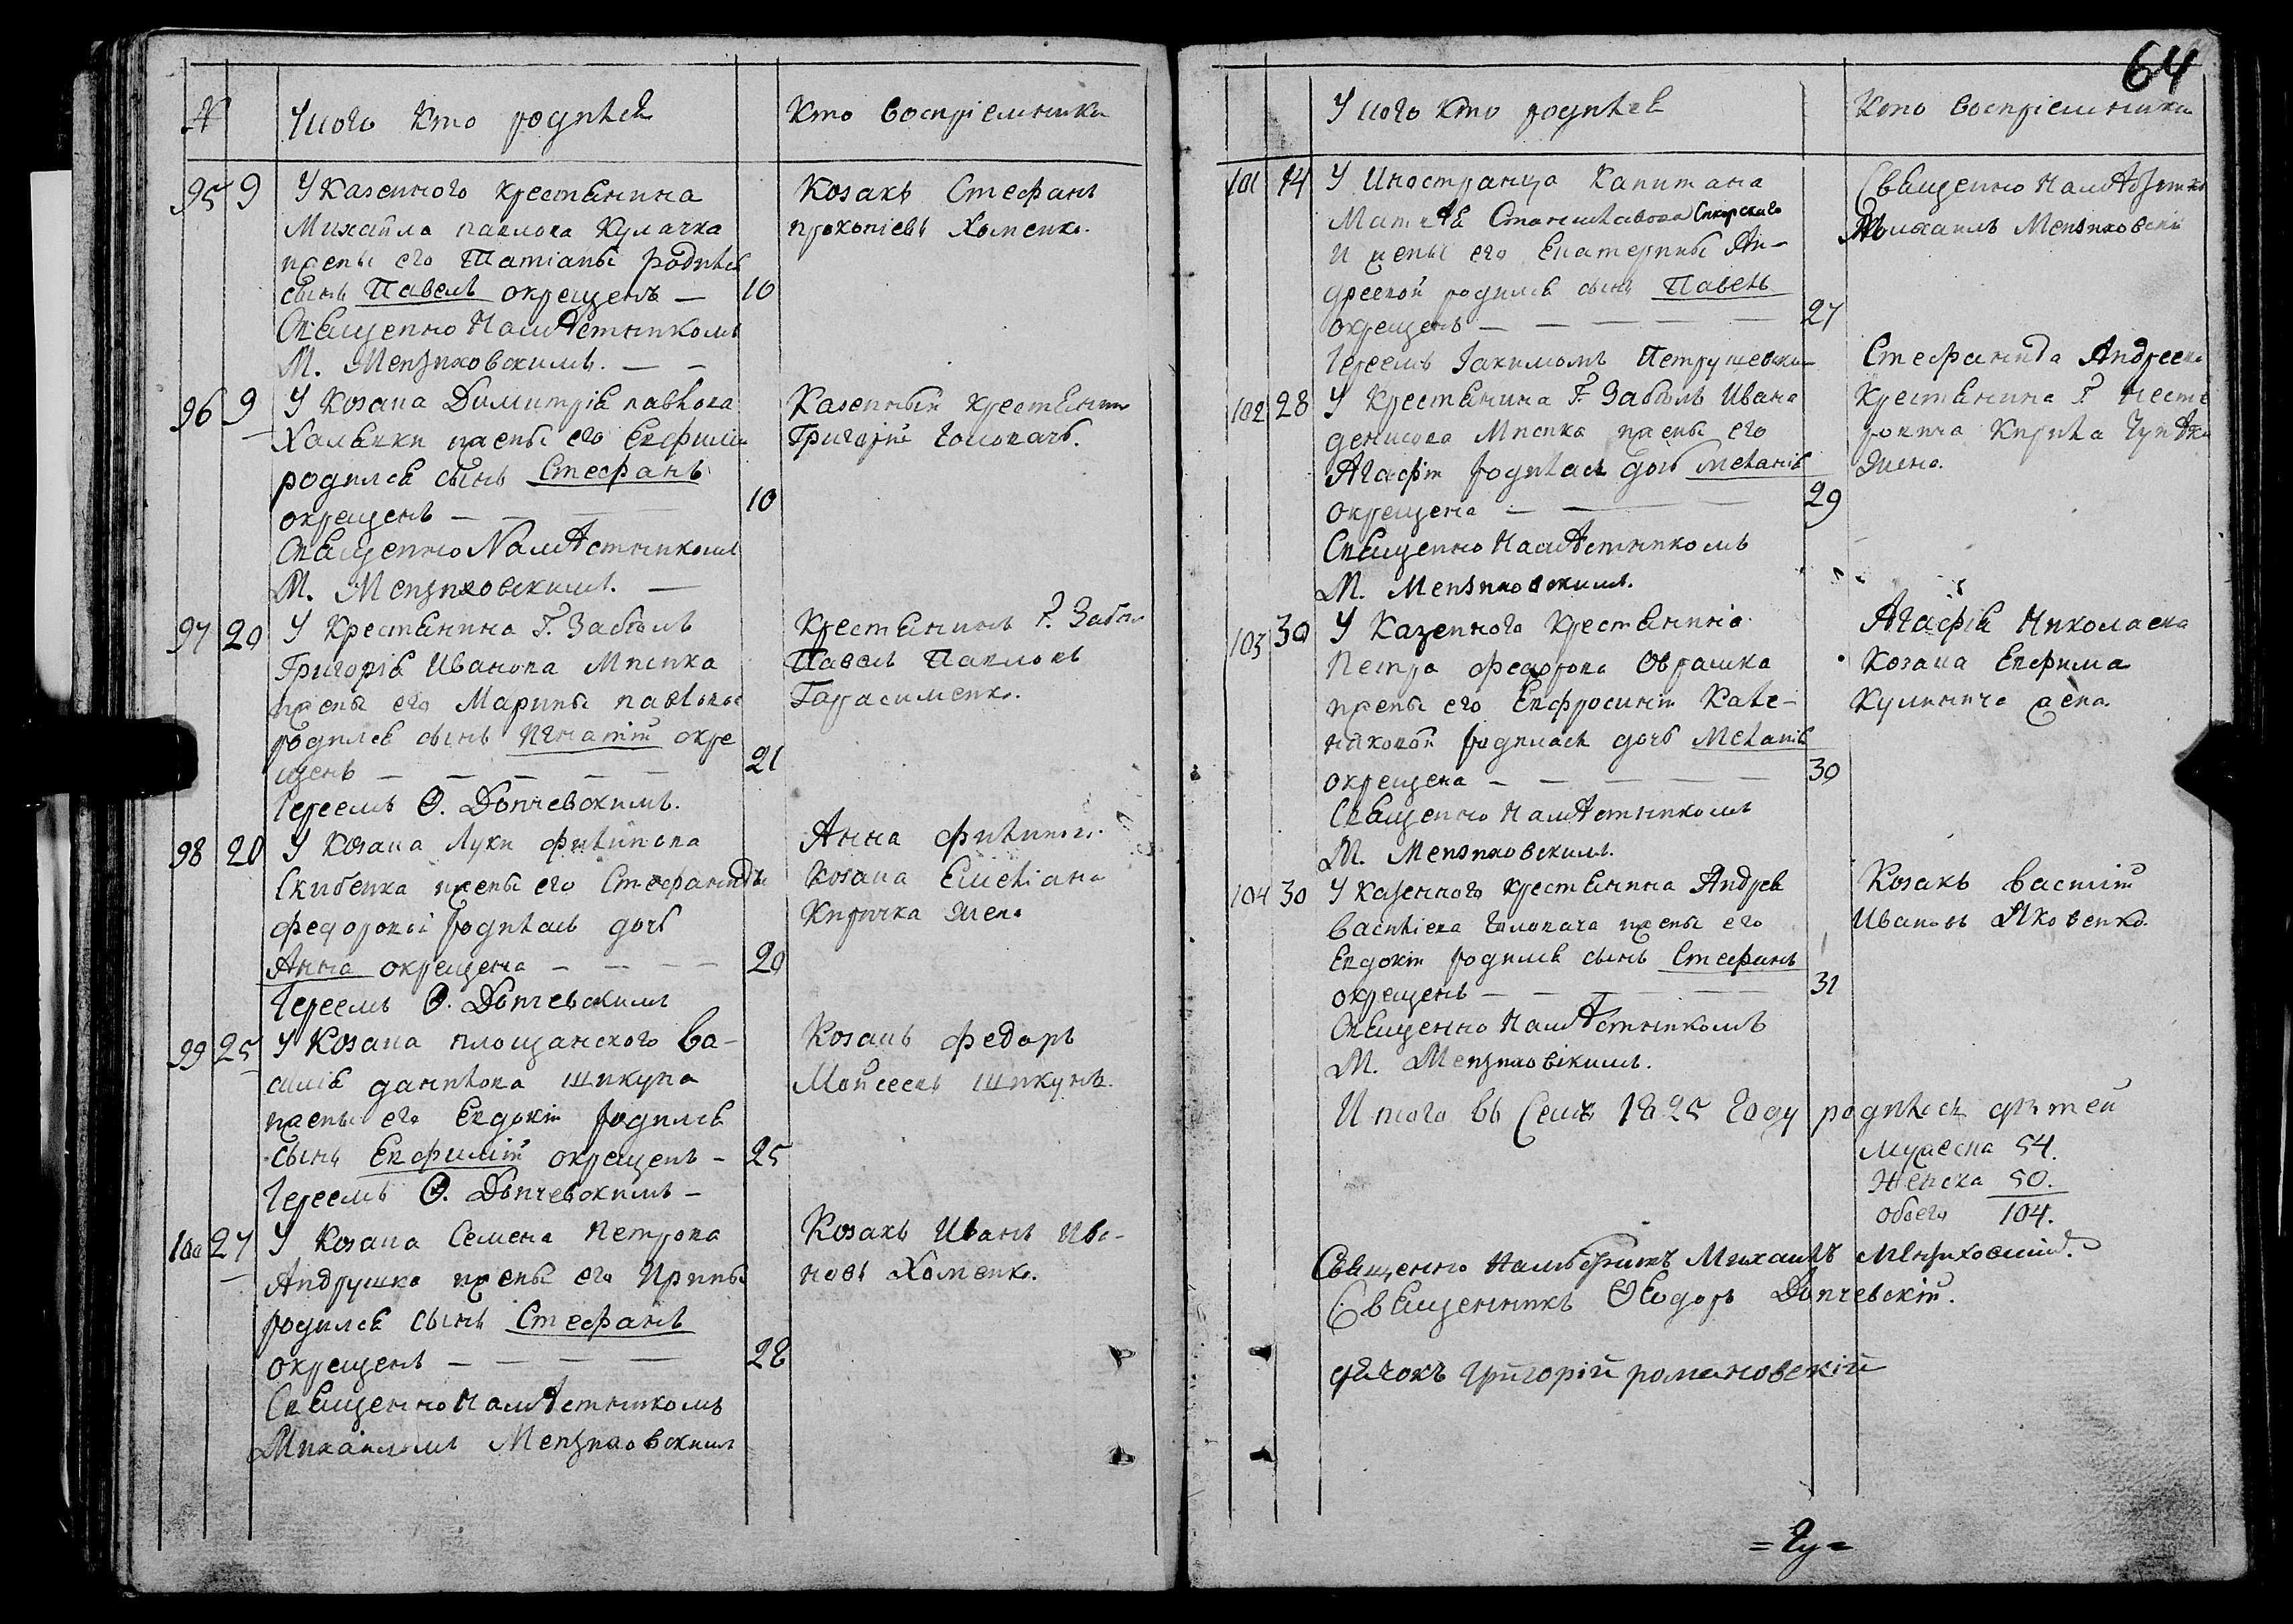 № У кого кто родился Кто воспріемники
95 9 У Казенного крестянина
Михаила павлова Кулачка
жены его Татіаны родился
сынъ Павелъ окрещенъ — 10
Священно Намѣстникомъ
М. Мензиховскимъ. — —
Козакъ Стефанъ
прокопіевъ Хоменко.
96 9 У Козака Димитрія павлова
жены его Евфиміи
родился сынъ Стефанъ
окрещенъ — 10
Священно Намѣстникомъ
М. Мензиховскимъ. —
Казенный крестянинъ
Григорій Головачъ.
97 20 У Крестянина Г. Забѣлъ
Григорія Иванова Мисика
жены его Марины павловой
родился сынъ Игнатій окре
щенъ — — — — — 21
Іереемъ Ѳ. Допчевскимъ.
Крестянинъ Г. Забѣл
Павелъ Павловъ
Гарасименко.
98 20 У Козака Луки филипова
Скибенка жены его Стефаниды
федоровой родилась дочъ
Анна окрещена — — — — 20
Іереемъ Ѳ. Допчевскимъ
Анна филипова
Козака Емеліана
Киричка жена
99 25 У Козака площанского Ва-
силія данилова шикуна
жены его Евдокіи родился
сынъ Евфимій окрещенъ — 25
Іереемъ Ѳ. Допчевскимъ —
Козакъ федоръ
Мойсеевъ шикунъ.
100 27 У Козака Семена Петрова
Андрушка жены его Ирины
родился сынъ Стефанъ
окрещенъ — — — — 28
Священно Намѣстникомъ
Михаиломъ Мензиховскимъ
Козакъ Иванъ Ива-
новъ Хоменко.
64
У кого кто родился Кто воспріемники
101 14 У Иностранца Капитана
Матвѣя Станиславова Сикорского
и жены его Екатерины Ан-
дреевой родился сынъ Павелъ
окрещенъ — — — — — 27
Іереемъ Іакимомъ Петрушевски
Священно Намѣстник
Михаилъ Мензиховскій
102 28 У Крестянина Г. Забѣлъ Ивана
денисова Мисика жены его
Агафіи родилась дочъ Меланія
окрещена — — — 29
Священно Намѣстникомъ
М. Мензиховскимъ.
Стефанида Андреева
Крестянина Г.
Кирила
жена.
103 30 У Казенного Крестянина
Петра федорова Оврашка
жены его Евфросиніи Кале-
никовой родилась дочъ Меланія
окрещена — — — — — 30
Священно Намѣстникомъ
М. Мензиховскимъ.
Агафія Николаева
Козака Евфима
Кулинича жена
104 30 У казенного крестянина Андрея
Василіева Головача жены его
Евдокіи родился сынъ Стефанъ
окрещенъ — — — — — 31
Священно Намѣстникомъ
М. Мензиховскимъ.
Козакъ Василій
Ивановъ Яковенко.
Итого въ Семъ 1825 Году родилось дѣтей
Мужеска 54.
Женска 50.
обоего 104.
Священно Намѣстникъ Михаилъ Мензиховскій.
Священникъ Ѳеодоръ Допчевскій.
дячокъ Григорій романовский